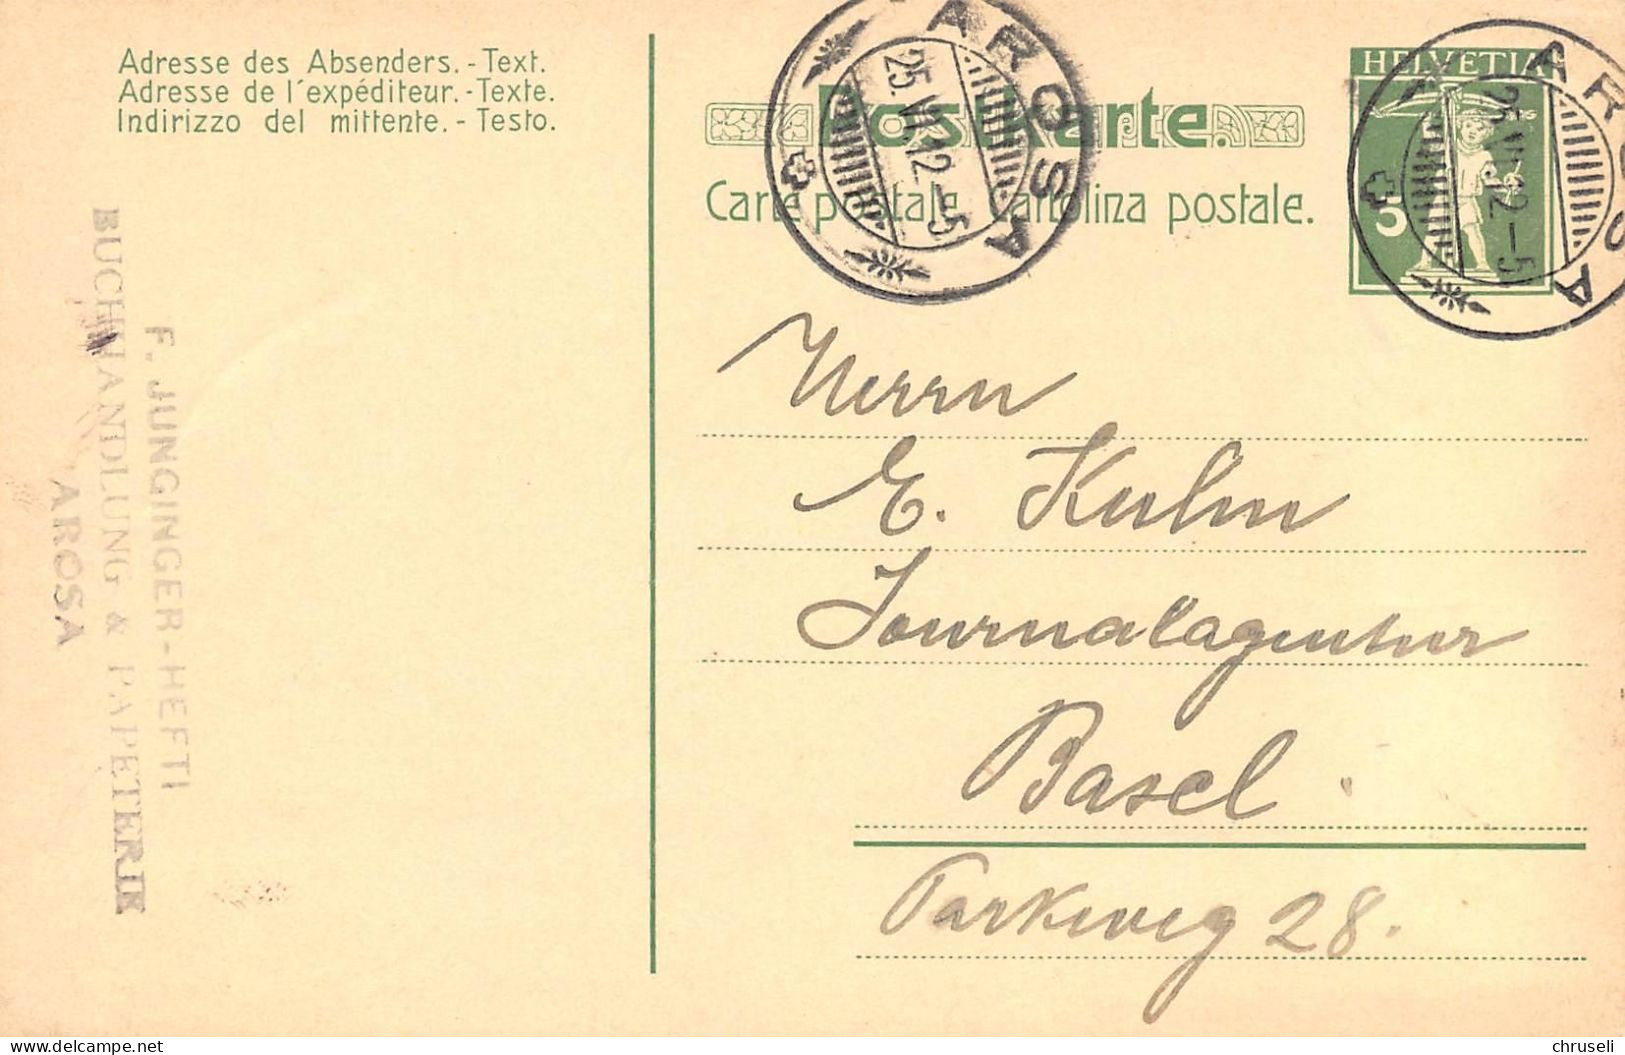 Adresse des Absenders. - Text.
Adresse de l'expéditeur. - Texte.
Indirizzo del mittente. - Testo.
Postkarte.
Carte postale. Cartolina postale.
AROSA
25.VI.12.-5
HELVETIA
5
AROSA
25.VI.12.-5
F. JUNGINGER-HEFTI
BUCHHANDLUNG & PAPETERIE
AROSA
Herrn
E. Kuhn
Journalagentur
Basel
Parkweg 28.
chruseli